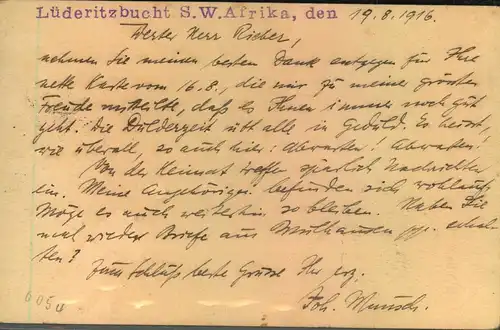 Lüderitzbucht S.W.Afrika, den 19.8.1916.
Werter Herr Richer,
nehmen Sie meinen besten Dank entgegen für Ihre
nette Karte vom 16.8., die mir zu meiner grossen
Freude mitteilte, daß es Ihnen immer noch gut
geht. Die Dulderzeit übt alle in Geduld. Es heisst,
wie überall, so auch hier: Abwarten! Abwarten!
Von der Heimat treffen spärlich Nachrichten
ein. Meine Angehörigen befinden sich wohlauf.
Möge es auch weiterhin so bleiben. Haben Sie
mal wieder Briefe aus Mülhausen pp. erhal-
ten?
Zum Schluß beste Grüsse Ihr erg.
Joh. Munsch.